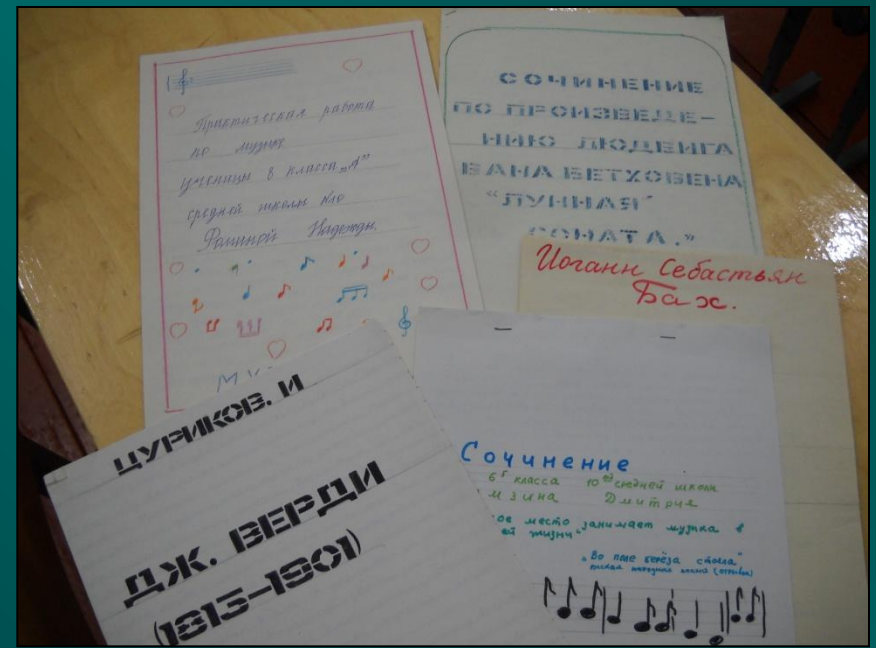 Практическая работа
по музыке
ученицы 8 класса „А"
средней школы №10
Фоминой Надежды.
СОЧИНЕНИЕ
ПО ПРОИЗВЕДЕ-
НИЮ ЛЮДВИГА
ВАНА БЕТХОВЕНА
"ЛУННАЯ
СОНАТА."
Иоганн Себастьян
Бах.
ЦУРИКОВ. И
ДЖ. ВЕРДИ
(1813-1901)
Сочинение
6 класса 10 средней школы
Дмитрия
место занимает музыка в
жизни.
„Во поле берёза стояла"
народная песня